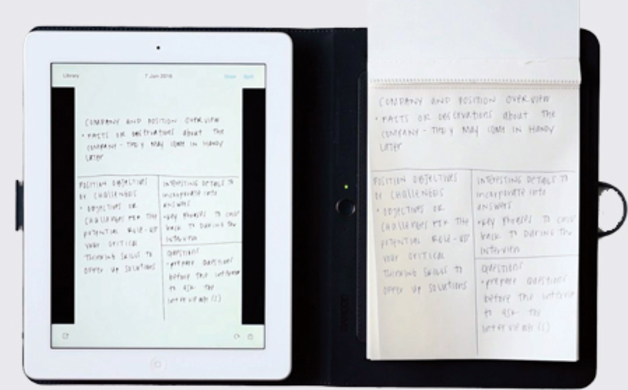 Library 7 Jan 2016
COMPANY AND POSITION OVERVIEW
• FACTS OR OBSERVATIONS about the
COMPANY - THEY MAY COME IN HANDY
LATER
POSITION OBJECTIVES
OR CHALLENGES
• OBJECTIVES OR
CHALLENGES FOR THE
POTENTIAL ROLE - USE
YOUR CRITICAL
THINKING SKILLS TO
OFFER UP SOLUTIONS
INTERESTING DETAILS TO
incorporate into
answers
• KEY PHRASES TO CALL
back to DURING THE
INTERVIEW
QUESTIONS
• prepare questions
before the interview
to ask the
interviewer(s)
COMPANY AND POSITION OVERVIEW
• FACTS OR OBSERVATIONS about the
COMPANY - THEY MAY COME IN HANDY
LATER
POSITION OBJECTIVES
OR CHALLENGES
• OBJECTIVES OR
CHALLENGES FOR THE
POTENTIAL ROLE - USE
YOUR CRITICAL
THINKING SKILLS TO
OFFER UP SOLUTIONS
INTERESTING DETAILS TO
incorporate into
answers
• KEY PHRASES TO CALL
back to DURING THE
INTERVIEW
QUESTIONS
• prepare questions
before the interview
to ask the
interviewer(s)